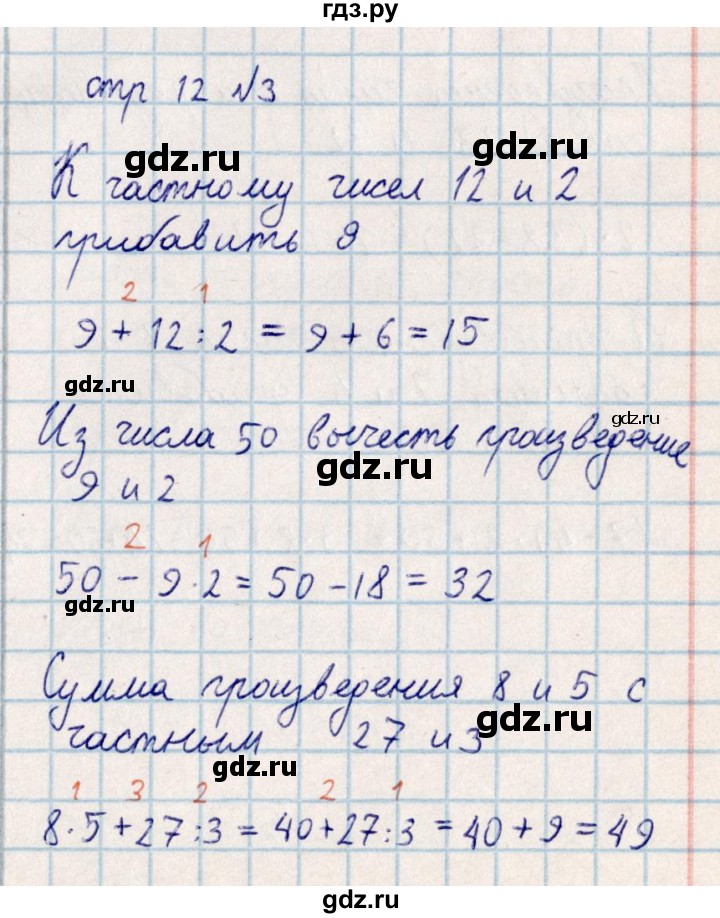 гдз.ру
стр 12 №3
gdz.ru
gdz.ru
К частному чисел 12 и 2
прибавить 9
2 1
9 + 12 : 2 = 9 + 6 = 15
gdz.ru
gdz.ru
Из числа 50 вычесть произведение
gdz.ru
9 и 2
2 1
50 - 9 · 2 = 50 - 18 = 32
gdz.ru
Сумма произведения 8 и 5 с
gdz.ru
частным 27 и 3
gdz.ru
1 3 2 2 1
8 · 5 + 27 : 3 = 40 + 27 : 3 = 40 + 9 = 49
gdz.ru